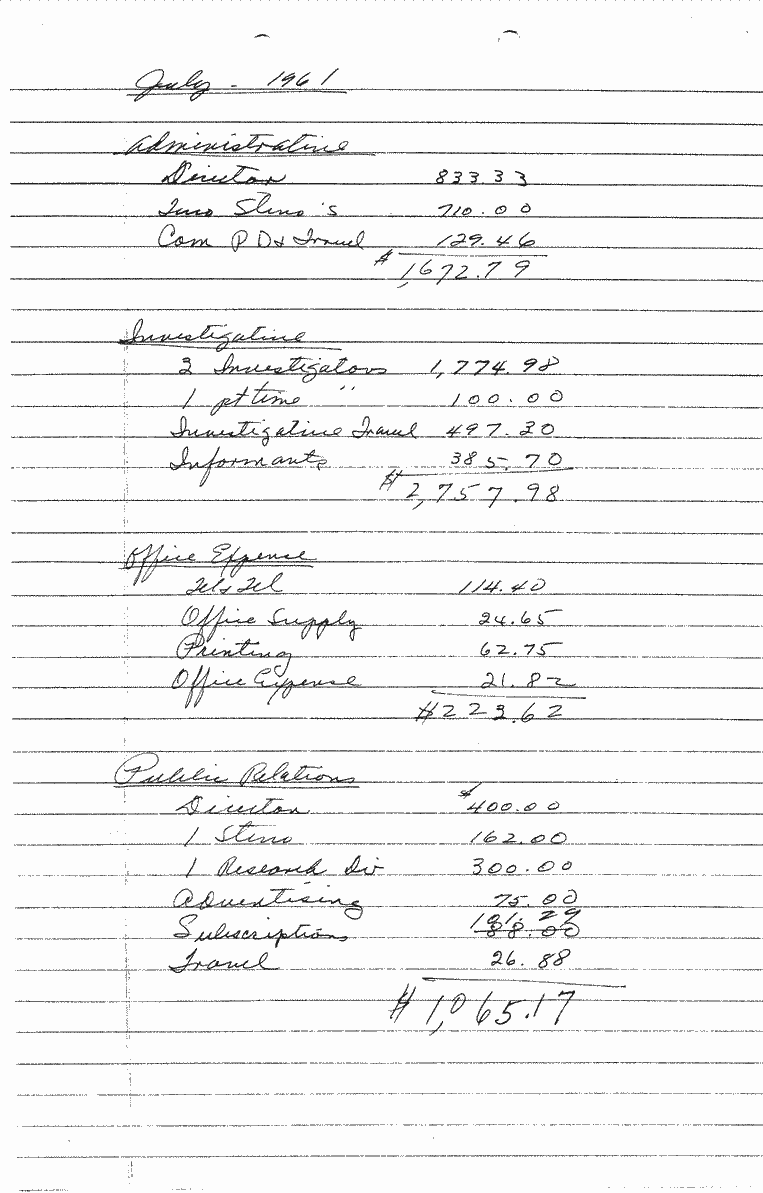 July - 1961
Administrative
Director 833.33
Two Steno's 710.00
Com P D & Travel 129.46
$ 1,672.79
Investigative
3 Investigators 1,774.98
1 pt time " 100.00
Investigative Travel 497.30
Informants 385.70
$2,757.98
Office Expense
Tel & Tel 114.40
Office Supply 24.65
Printing 62.75
Office Expense 21.82
$223.62
Public Relations
Director $400.00
1 Steno 162.00
1 Research Dir 300.00
Advertising 75.00
101.29
Subscriptions 88.00
Travel 26.88
$1,065.17